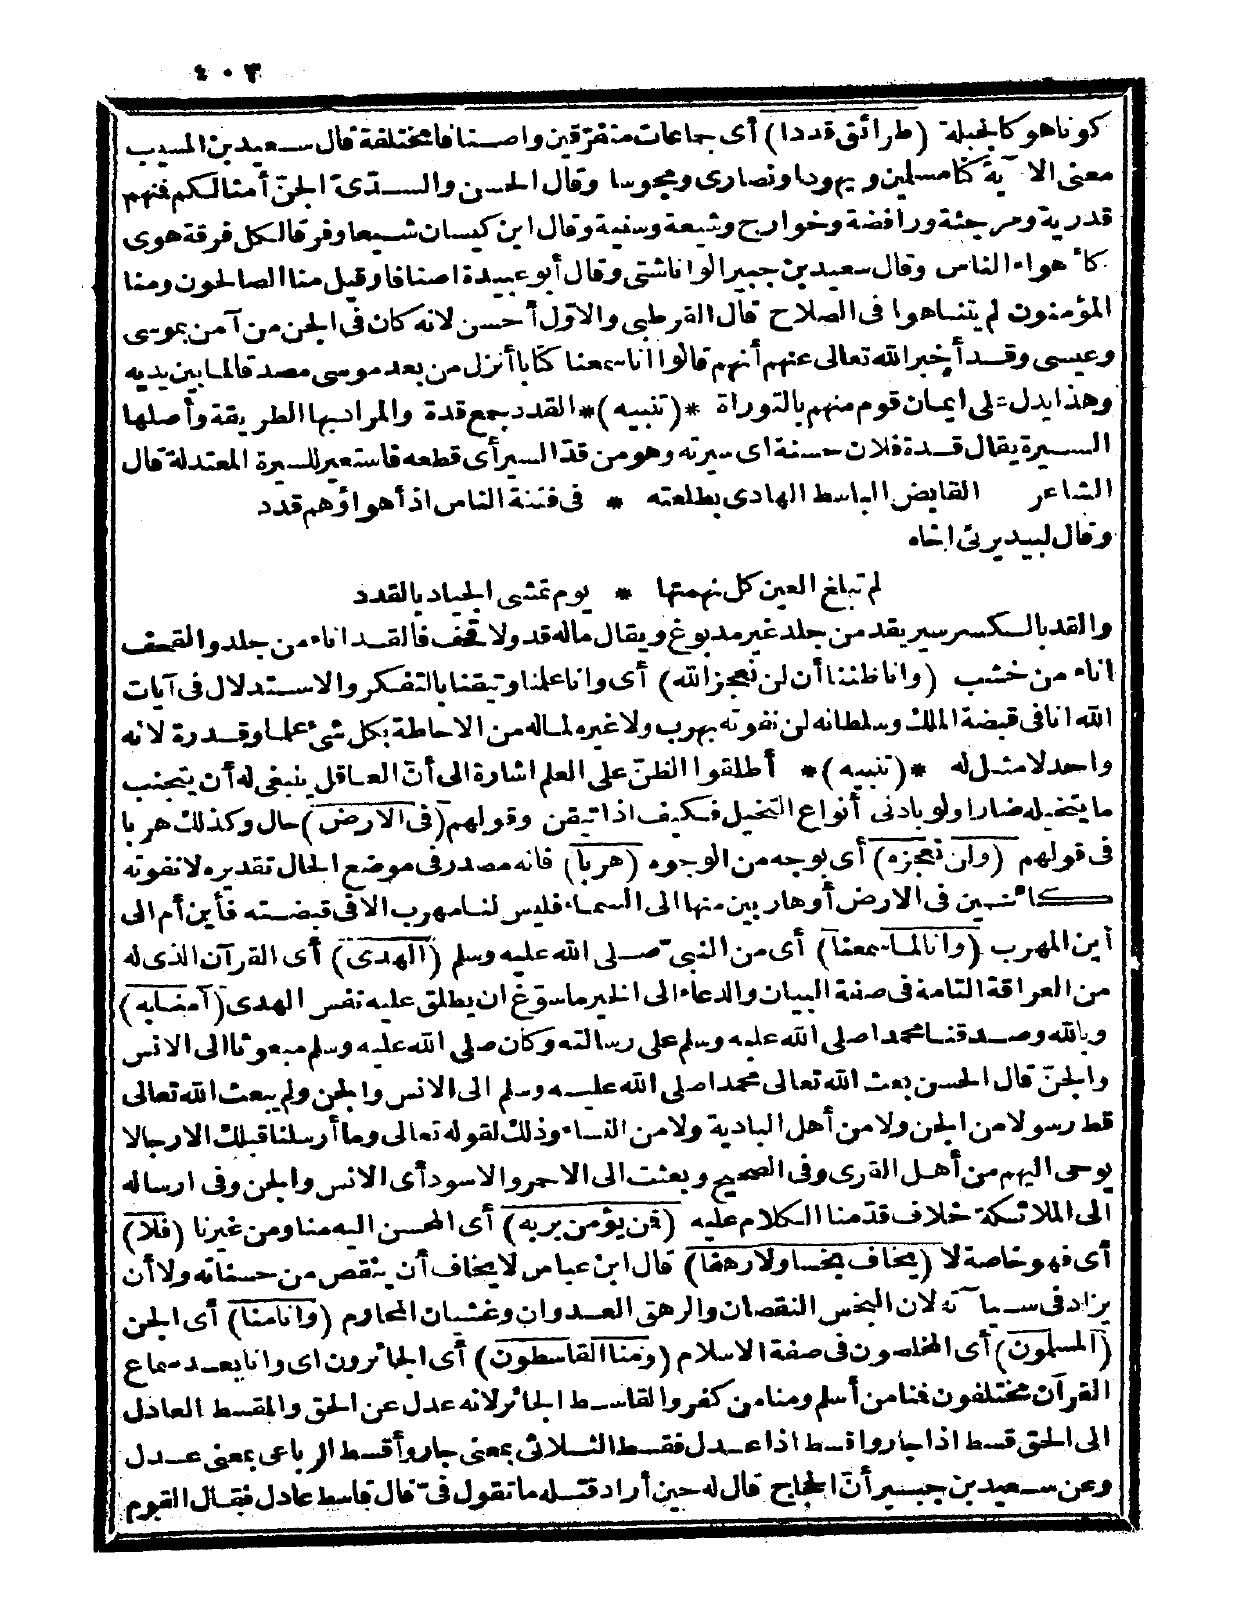 ٤٠٣
كوناهو كالجبلة (طرائق قددا) أى جماعات متفرّقين واصنافا مختلفة قال سعيد بن المسيب
معنى الآية كنا مسلمين ويهودا ونصارى ومجوسا وقال الحسن والسدّى الجنّ أمثالكم فنهم
قدرية ومرجئة ورافضة وخوارج وشيعة وسنية وقال ابن كيسان شيعا وفرقا لكل فرقة هوى
كأهواء الناس وقال سعيد بن جبير الوانا شتى وقال أبو عبيدة اصنافا وقيل منا الصالحون ومنا
المؤمنون لم يتناهوا فى الصلاح قال القرطبى والاوّل أحسن لانه كان فى الجن من آمن بموسى
وعيسى وقد أخبر الله تعالى عنهم أنهم قالوا انا سمعنا كتابا أنزل من بعد موسى مصدقا لما بين يديه
وهذا يدل على ايمان قوم منهم بالتوراة *(تنبيه)* القدد جمع قدة والمراد بها الطريقة وأصلها
السيرة يقال قدة فلان حسنة اى سيرته وهو من قدّ السير أى قطعه فاستعير للسيرة المعتدلة قال
الشاعر القابض الباسط الهادى بطلعته * فى فتنة الناس اذ أهواؤهم قدد
وقال لبيد يرثى اخاه
لم تبلغ العين كل نهمتها * يوم تمشى الجياد بالقدد
والقد بالكسر سير يقد من جلد غير مدبوغ ويقال ماله قد ولا قحف فالقد اناء من جلد والقحف
اناء من خشب (وانا ظننا أن لن نعجز الله) أى وانا علمنا وتيقنا بالتفكر والاستدلال فى آيات
الله انا فى قبضة الملك وسلطانه لن نفوته بهرب ولا غيره لماله من الاحاطة بكل شئ علما وقدرة لانه
واحد لا مثل له *(تنبيه)* أطلقوا الظنّ على العلم اشارة الى أنّ العاقل ينبغى له أن يتجنب
ما يتخيله ضارا ولو بادنى أنواع التخيل فكيف اذا تيقن وقولهم (فى الارض) حال وكذلك هربا
فى قولهم (ولن نعجزه) أى بوجه من الوجوه (هربا) فانه مصدر فى موضع الحال تقديره لا نفوته
كائنين فى الارض أو هاربين منها الى السماء فليس لنا مهرب الا فى قبضته فأين أم الى
أين المهرب (وانا لما سمعنا) أى من النبىّ صلى الله عليه وسلم (الهدى) أى القرآن الذى له
من العراقة التامة فى صفة البيان والدعاء الى الخير ما سوّغ ان يطلق عليه نفس الهدى (آمنا به)
وبالله وصدقنا محمدا صلى الله عليه وسلم على رسالته وكان صلى الله عليه وسلم مبعوثا الى الانس
والجنّ قال الحسن بعث الله تعالى محمدا صلى الله عليه وسلم الى الانس والجن ولم يبعث الله تعالى
قط رسولا من الجن ولا من أهل البادية ولا من النساء وذلك لقوله تعالى وما أرسلنا قبلك الا رجالا
يوحى اليهم من أهل القرى وفى الصحيح وبعثت الى الاحمر والاسود أى الانس والجن وفى ارساله
الى الملائكة خلاف قدّمنا الكلام عليه (فمن يؤمن بربه) أى المحسن اليه منا ومن غيرنا (فلا)
أى فهو خاصة لا (يخاف بخسا ولا رهقا) قال ابن عباس لا يخاف أن ينقص من حسناته ولا أن
يزاد فى سيآته لان البخس النقصان والرهق العدوان وغشيان المحارم (وانا منا) أى الجن
(المسلمون) أى المخلصون فى صفة الاسلام (ومنا القاسطون) أى الجائرون اى وانا بعد سماع
القرآن مختلفون فنا من أسلم ومنا من كفر والقاسط الجائر لانه عدل عن الحق والمقسط العادل
الى الحق قسط اذا جار واقسط اذا عدل فقسط الثلاثى بمعنى جار وأقسط الرباعى بمعنى عدل
وعن سعيد بن جبير أنّ الحجاج قال له حين أراد قتله ما تقول فىّ قال قاسط عادل فقال القوم